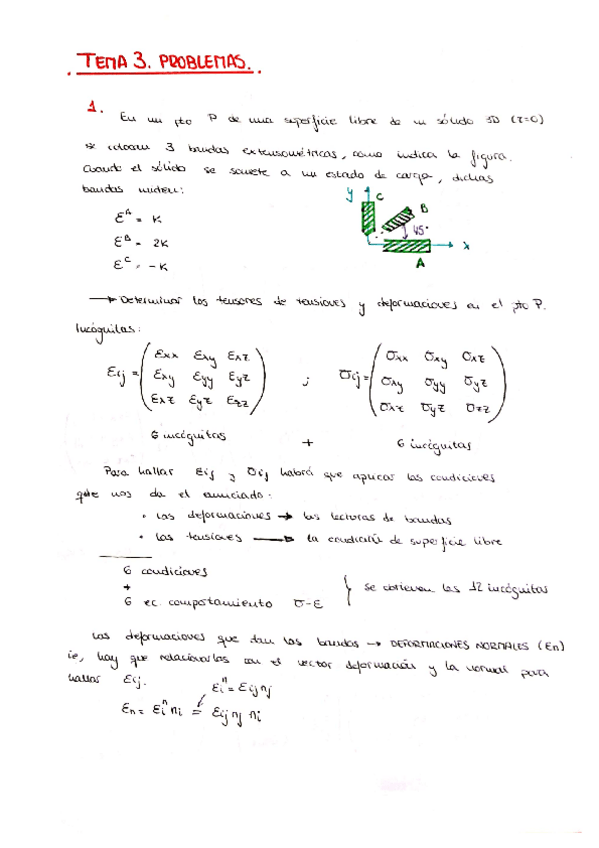 TEMA 3. PROBLEMAS.
1. En un pto P de una superficie libre de un sólido 3D (τ=0)
se colocan 3 bandas extensométricas, como indica la figura.
Cuando el sólido se somete a un estado de carga, dichas
bandas miden:
y C B 45° x A
ε^A = K
ε^B = 2K
ε^C = -K
→ Determinar los tensores de tensiones y deformaciones en el pto P.
Incógnitas:
εij = ( εxx εxy εxz ; σij = ( σxx σxy σxz
εxy εyy εyz σxy σyy σyz
εxz εyz εzz ) σxz σyz σzz )
6 incógnitas + 6 incógnitas
Para hallar εij y σij habrá que aplicar las condiciones
que nos da el enunciado:
• las deformaciones → las lecturas de bandas
• las tensiones → la condición de superficie libre
6 condiciones
+
6 ec. comportamiento σ-ε } se obtienen las 12 incógnitas
Las deformaciones que dan las bandas → DEFORMACIONES NORMALES (εn)
ie, hay que relacionarlas con el vector deformación y la normal para
hallar εij.
εi^n = εij nj
εn = εi^n ni = εij nj ni